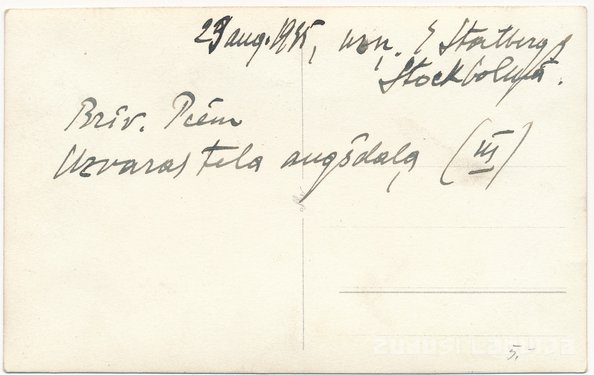 23 aug. 1935, uzņ. E Stolberg
Stockholmā.
Brīv. Piem
Uzvaras tela augšdaļa (III)
5.-